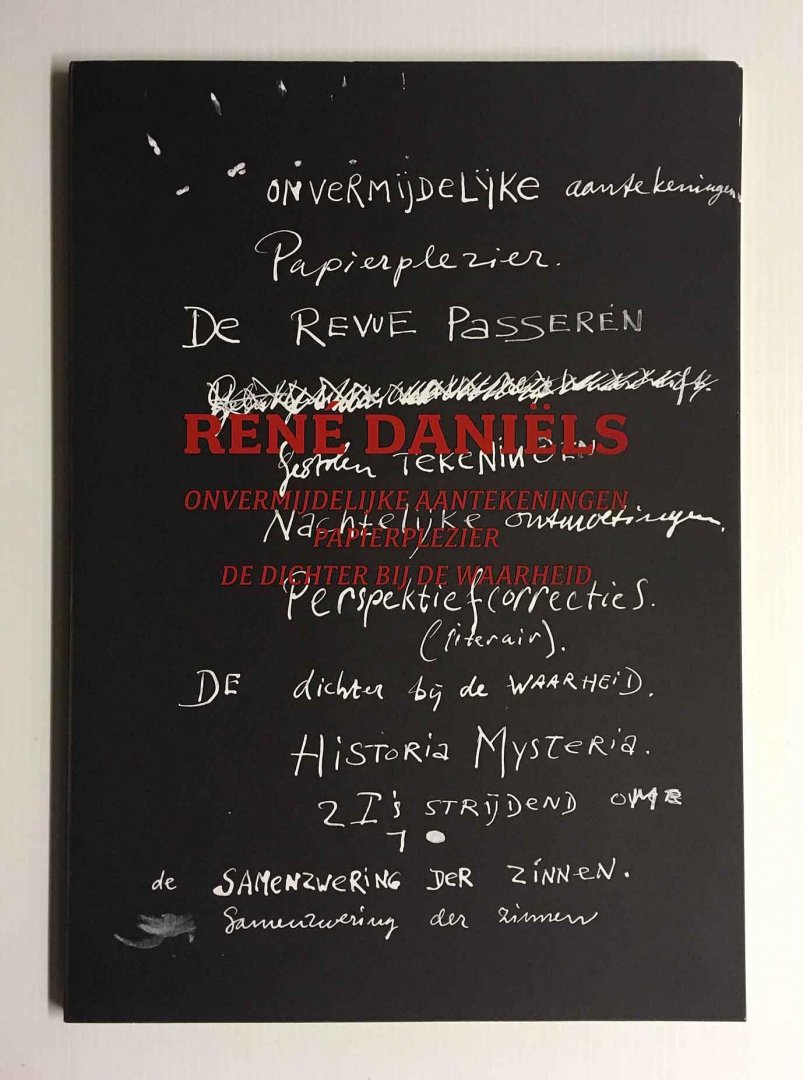 ONVERMIJDELIJKE aantekeningen
Papierplezier.
De REVUE PASSEREN
RENÉ DANIËLS
gestolen TEKENINGEN
ONVERMIJDELIJKE AANTEKENINGEN
Nachtelijke ontmoetingen.
PAPIERPLEZIER
DE DICHTER BIJ DE WAARHEID
Perspektiefcorrecties.
(literair).
DE dichter bij de WAARHEID.
HISTORIA MYSTERIA.
2 I's STRIJDEND OM
1
de SAMENZWERING DER ZINNEN.
Samenzwering der zinnen